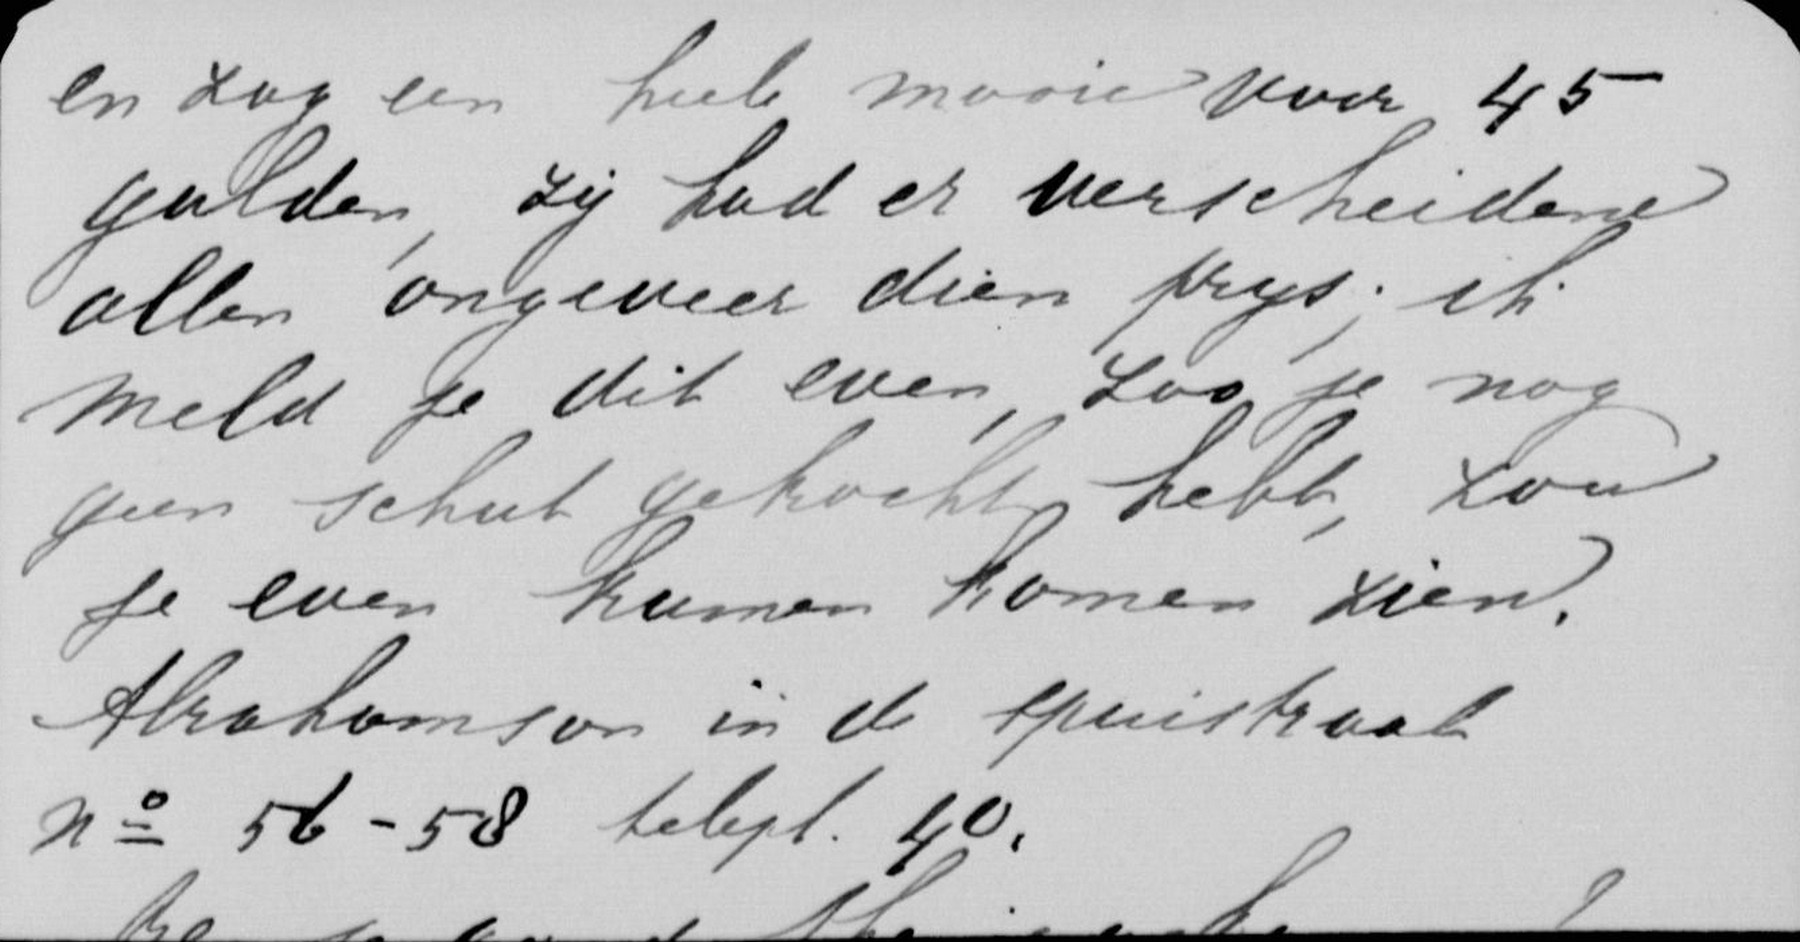 en zag een hele mooie voor 45
gulden, zij had er verscheidene
allen ongeveer dien prijs; ik
meld je dit even, zoo je nog
geen schut gekocht hebt, zou
je even kunnen komen zien.
Abrahamson in de spuistraat
nº 56-58 teleph. 40.